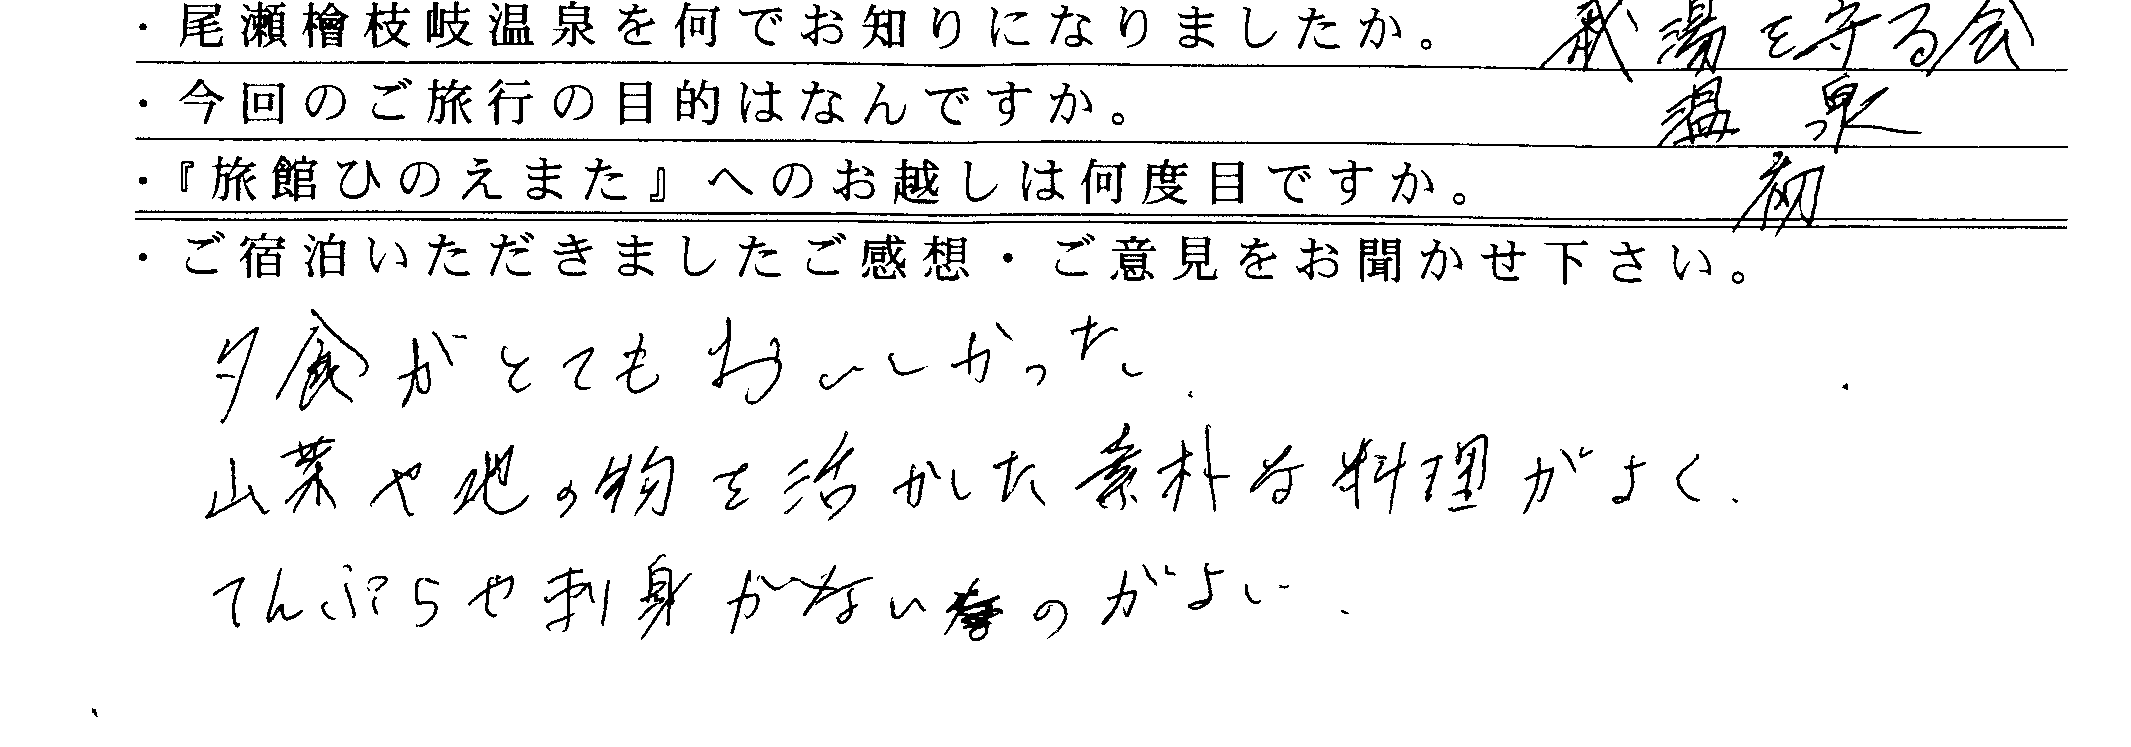 ・尾瀬檜枝岐温泉を何でお知りになりましたか。 秘湯を守る会
・今回のご旅行の目的はなんですか。 温泉
・『旅館ひのえまた』へのお越しは何度目ですか。 初
・ご宿泊いただきましたご感想・ご意見をお聞かせ下さい。
夕食がとてもおいしかった.
山菜や地の物を活かした素朴な料理がよく.
てんぷらや刺身がないのがよい.